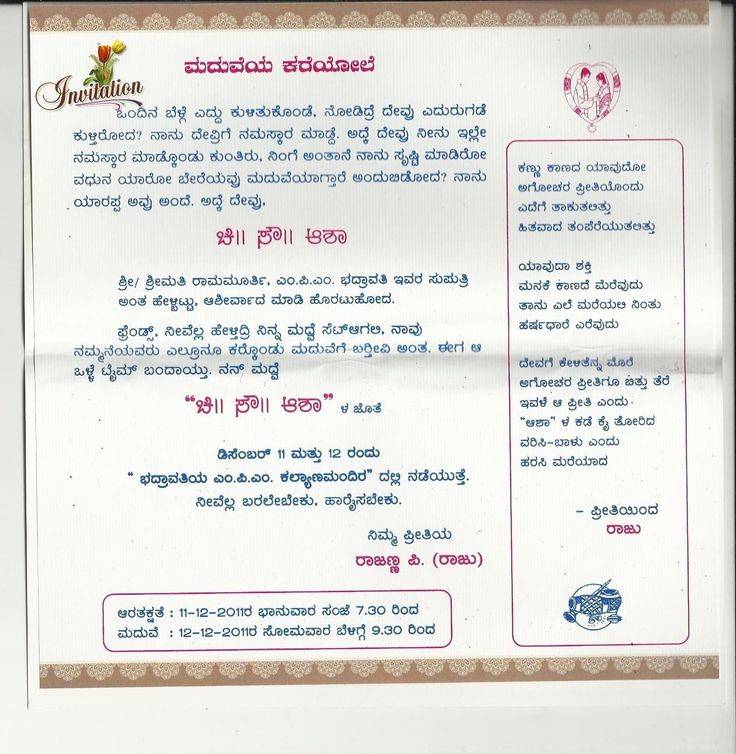 Invitation
ಮದುವೆಯ ಕರೆಯೋಲೆ
ಒಂದಿನ ಬೆಳ್ಗೆ ಎದ್ದು ಕುಳಿತುಕೊಂಡೆ, ನೋಡಿದ್ರೆ ದೇವ್ರು ಎದುರುಗಡೆ
ಕುಳ್ತಿರೋದ? ನಾನು ದೇವ್ರಿಗೆ ನಮಸ್ಕಾರ ಮಾಡ್ದೆ. ಅದ್ಕೆ ದೇವ್ರು ನೀನು ಇಲ್ಲೇ
ನಮಸ್ಕಾರ ಮಾಡ್ಕೊಂಡು ಕುಂತಿರು, ನಿಂಗೆ ಅಂತಾನೆ ನಾನು ಸೃಷ್ಟಿ ಮಾಡಿರೋ
ವಧುನ ಯಾರೋ ಬೇರೆಯವ್ರು ಮದುವೆಯಾಗ್ತಾರೆ ಅಂದುಬಿಡೋದ? ನಾನು
ಯಾರಪ್ಪ ಅವ್ರು ಅಂದೆ. ಅದ್ಕೆ ದೇವ್ರು,
ಚಿ॥ ಸೌ॥ ಆಶಾ
ಶ್ರೀ/ ಶ್ರೀಮತಿ ರಾಮಮೂರ್ತಿ, ಎಂ.ಪಿ.ಎಂ. ಭದ್ರಾವತಿ ಇವರ ಸುಪುತ್ರಿ
ಅಂತ ಹೇಳ್ಬಿಟ್ಟು, ಆಶೀರ್ವಾದ ಮಾಡಿ ಹೊರಟುಹೋದ.
ಫ್ರೆಂಡ್ಸ್, ನೀವೆಲ್ಲ ಹೇಳ್ತಿದ್ರಿ ನಿನ್ನ ಮದ್ವೆ ಸೆಟ್ಆಗಲಿ, ನಾವು
ನಮ್ಮನೆಯವರು ಎಲ್ರೂನೂ ಕರ್‍ಕೊಂಡು ಮದುವೆಗೆ ಬರ್‍ತೀವಿ ಅಂತ. ಈಗ ಆ
ಒಳ್ಳೆ ಟೈಮ್ ಬಂದಾಯ್ತು. ನನ್ ಮದ್ವೆ
“ಚಿ॥ ಸೌ॥ ಆಶಾ” ಳ ಜೊತೆ
ಡಿಸೆಂಬರ್ 11 ಮತ್ತು 12 ರಂದು
“ ಭದ್ರಾವತಿಯ ಎಂ.ಪಿ.ಎಂ. ಕಲ್ಯಾಣಮಂದಿರ” ದಲ್ಲಿ ನಡೆಯುತ್ತೆ.
ನೀವೆಲ್ಲ ಬರಲೇಬೇಕು, ಹಾರೈಸಬೇಕು.
ನಿಮ್ಮ ಪ್ರೀತಿಯ
ರಾಜಣ್ಣ ಪಿ. (ರಾಜು)
ಆರತಕ್ಷತೆ : 11-12-2011ರ ಭಾನುವಾರ ಸಂಜೆ 7.30 ರಿಂದ
ಮದುವೆ : 12-12-2011ರ ಸೋಮವಾರ ಬೆಳಗ್ಗೆ 9.30 ರಿಂದ
ಕಣ್ಣು ಕಾಣದ ಯಾವುದೋ
ಅಗೋಚರ ಪ್ರೀತಿಯೊಂದು
ಎದೆಗೆ ತಾಕುತಲಿತ್ತು
ಹಿತವಾದ ತಂಪೆರೆಯುತಲಿತ್ತು
ಯಾವುದಾ ಶಕ್ತಿ
ಮನಕೆ ಕಾಣದೆ ಮೆರೆವುದು
ತಾನು ಎಲೆ ಮರೆಯಲಿ ನಿಂತು
ಹರ್ಷಧಾರೆ ಎರೆವುದು
ದೇವಗೆ ಕೇಳಿತೆನ್ನ ಮೊರೆ
ಅಗೋಚರ ಪ್ರೀತಿಗೂ ಬಿತ್ತು ತೆರೆ
ಇವಳೆ ಆ ಪ್ರೀತಿ ಎಂದು
“ಆಶಾ” ಳ ಕಡೆ ಕೈ ತೋರಿದ
ವರಿಸಿ-ಬಾಳು ಎಂದು
ಹರಸಿ ಮರೆಯಾದ
– ಪ್ರೀತಿಯಿಂದ
ರಾಜು